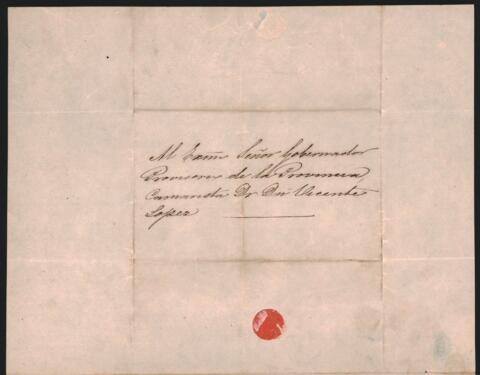 Al Exmo Señor Gobernador
Provisorio de la Provincia
Camarista Dr Dn Vicente
Lopez